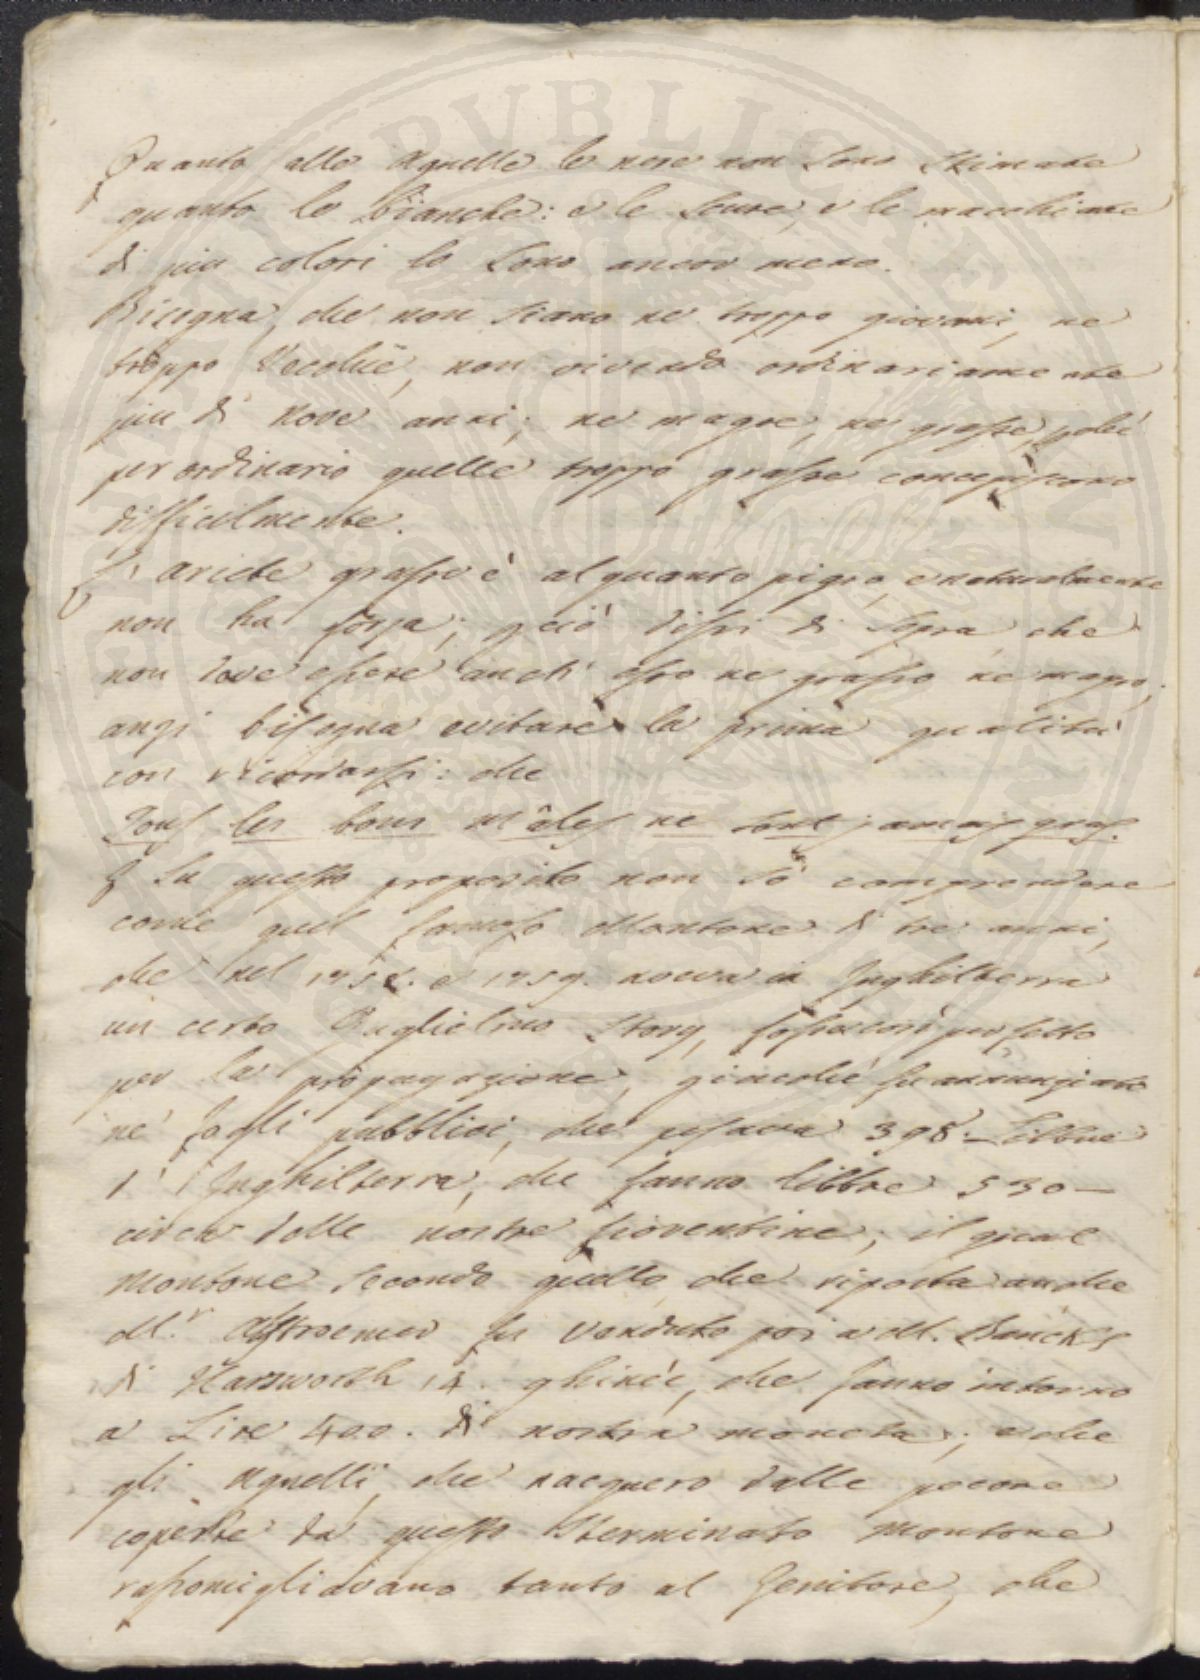 Quanto alle Agnelle le nere non sono stimate
quanto le bianche: e le scure, e le macchiate
di piu colori lo sono ancor meno.
Bisogna, che non siano ne troppo giovani, ne
troppo Vecchie, non vivendo ordinariamente
piu di nove anni; ne magre, ne grasse, poiché
per ordinario quelle troppo grasse concepiscono
difficilmente.
L'ariete grasso è alquanto pigro, e naturalmente
non ha forza; e ciò dissi di sopra, che
non deve essere anch' esso ne grasso ne magro;
anzi bisogna evitare la prima qualità
con ricordarsi: che
Tous les bons mâles ne sont jamais gras.
E su questo proposito non sò comprendere
come quel famoso Montone di tre anni,
che nel 1758. e 1759. aveva in Inghilterra
un certo Guglielmo Story, fosse così perfetto
per la propagazione, giacché fu annunziato
ne' fogli pubblici, che pesava 398. Libbre
d' Inghilterra, che fanno libbre 530 —
circa delle nostre fiorentine; il qual
Montone secondo quello, che riporta anche
M.r Alstroemer fu venduto poi a M. Bancks
di Harsworth 14. ghinée, che fanno intorno
a Lire 400. di nostra moneta; e che
gli Agnelli, che nacquero dalle pecore
coperte da questo sterminato Montone
rassomigliavano tanto al Genitore, che